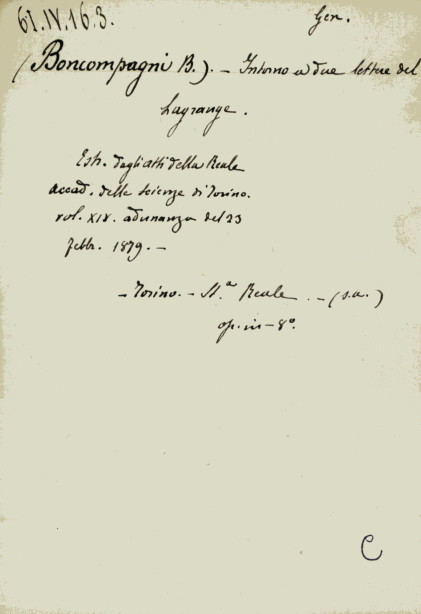 61.IV.16.3.
Gen.
(Boncompagni B.). – Intorno a due lettere del
Lagrange.
Estr. dagli atti della Reale
Accad. delle Scienze di Torino.
vol. XIV. adunanza del 23
febbr. 1879. –
– Torino. – St.ª Reale. – (s.a.)
op. in – 8º.
C